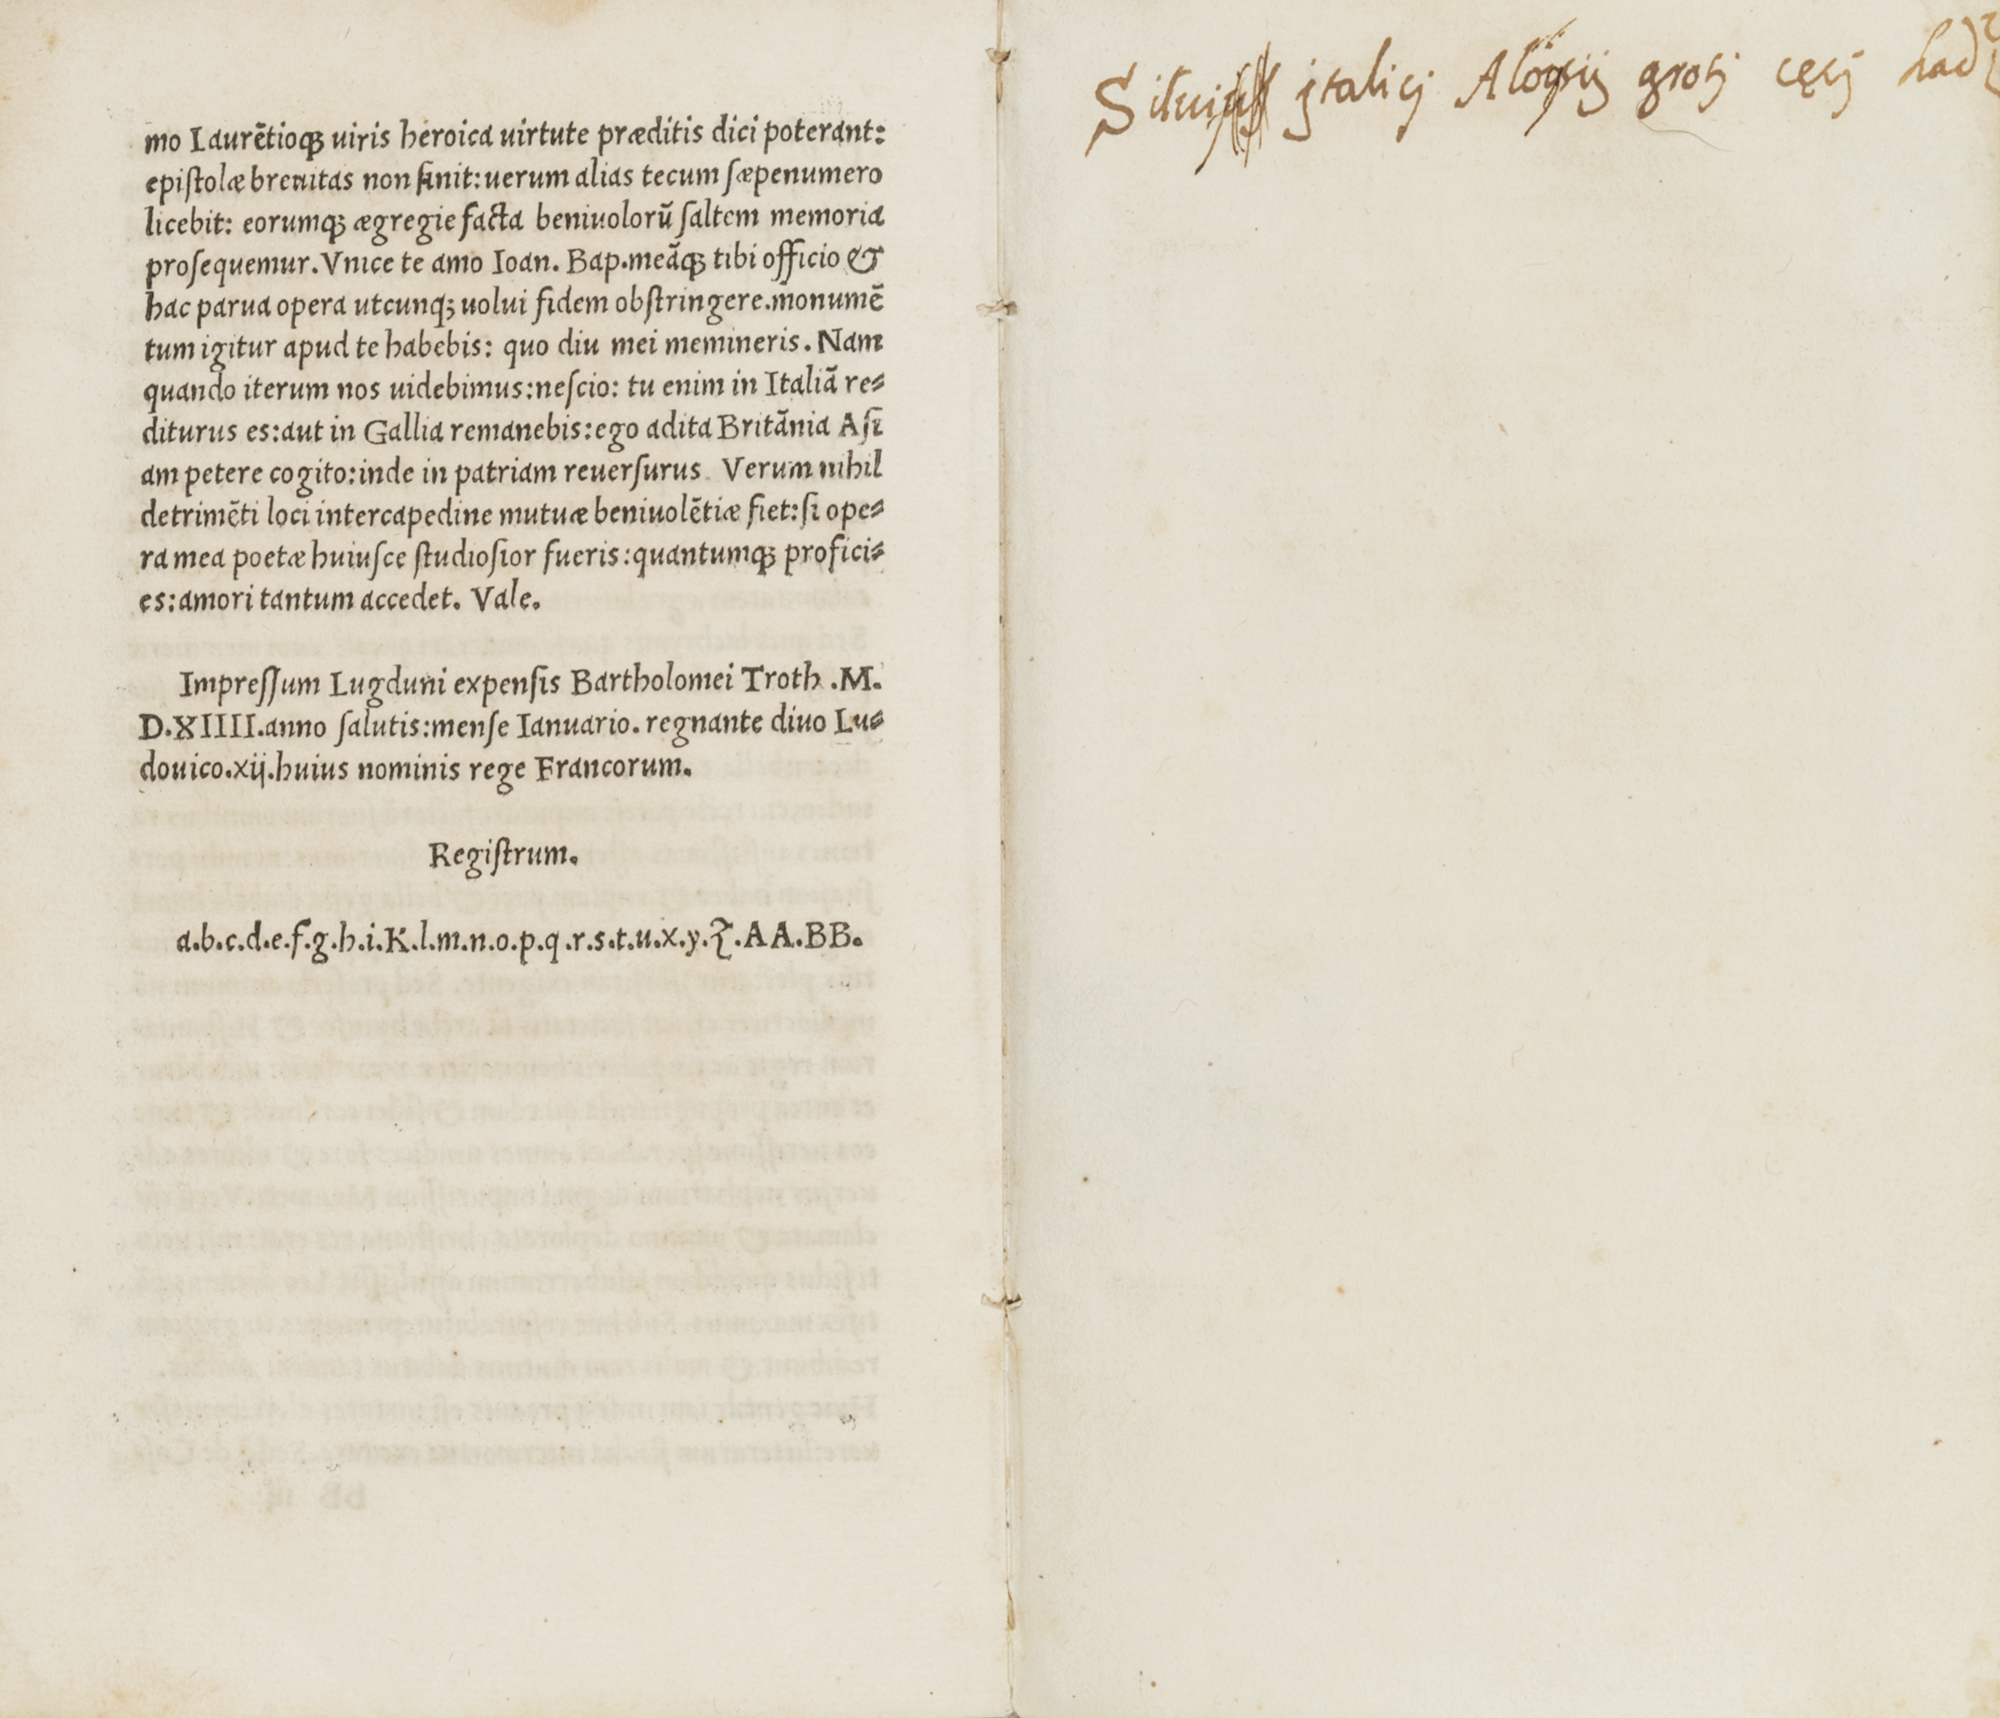 mo Laurētioqꝫ uiris heroica uirtute præditis dici poterant:
epiſtolæ breuitas non ſinit: uerum alias tecum ſæpenumero
licebit: eorumqꝫ ægregie facta beniuolorū ſaltem memoria
proſequemur. Vnice te amo Ioan. Bap. meāqꝫ tibi officio &
hac parua opera utcunqꝫ uolui fidem obſtringere. monumē
tum igitur apud te habebis: quo diu mei memineris. Nam
quando iterum nos uidebimus: neſcio: tu enim in Italiā re-
diturus es: aut in Gallia remanebis: ego adita Britānia Aſi
am petere cogito: inde in patriam reuerſurus. Verum nihil
detrimēti loci intercapedine mutuæ beniuolētiæ fiet: ſi ope-
ra mea poetæ huiuſce ſtudioſior fueris: quantumqꝫ profici-
es: amori tantum accedet. Vale.
Impreſſum Lugduni expenſis Bartholomei Troth .M.
D.XIIII. anno ſalutis: menſe Ianuario. regnante diuo Lu-
douico. xij. huius nominis rege Francorum.
Regiſtrum.
a.b.c.d.e.f.g.h.i.K.l.m.n.o.p.q.r.s.t.u.x.y.ξ.AA.BB.
jtalicj Aloysij grotj cęcj had